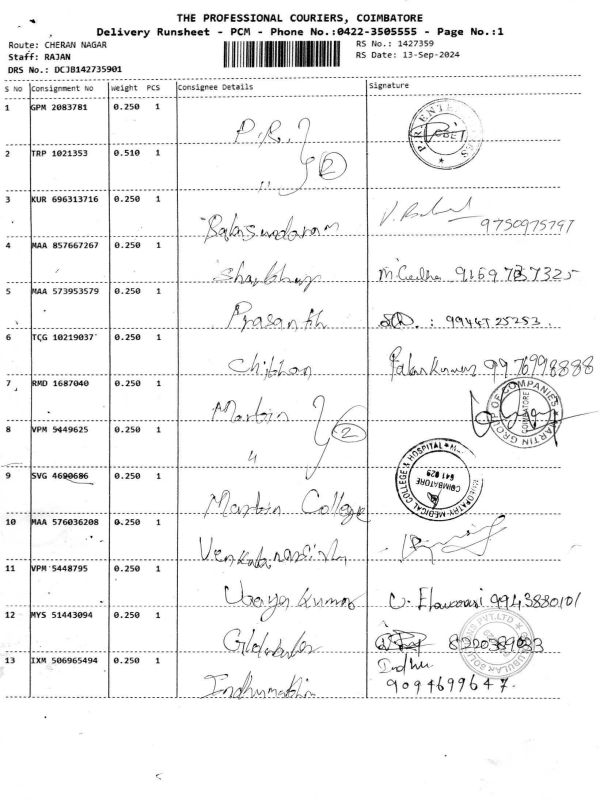 THE PROFESSIONAL COURIERS, COIMBATORE
Delivery Runsheet - PCM - Phone No.:0422-3505555 - Page No.:1
Route: CHERAN NAGAR RS No.: 1427359
Staff: RAJAN RS Date: 13-Sep-2024
DRS No.: DCJB142735901
S No Consignment No Weight PCS Consignee Details Signature
1 GPM 2083781 0.250 1
P.R.
2 TRP 1021353 0.510 1
" 2
3 KUR 696313716 0.250 1
Balasundaram 9750975797
4 MAA 857667267 0.250 1
9169737325
5 MAA 573953579 0.250 1
Prasanth : 9944725253
6 TCG 10219037 0.250 1
Chibhan 9976998888
7 RMD 1687040 0.250 1
Martin
MARTIN GROUP OF COMPANIES
COIMBATORE
8 VPM 5449625 0.250 1
" 2
9 SVG 4690686 0.250 1
Martin College
MEDICAL COLLEGE & HOSPITAL
COIMBATORE
641 029
10 MAA 576036208 0.250 1
11 VPM 5448795 0.250 1
Udaya Kumar 9943880101
12 MYS 51443094 0.250 1
8220389033
PVT.LTD
13 IXM 506965494 0.250 1
Indhu
Indhumathi 9094699647.